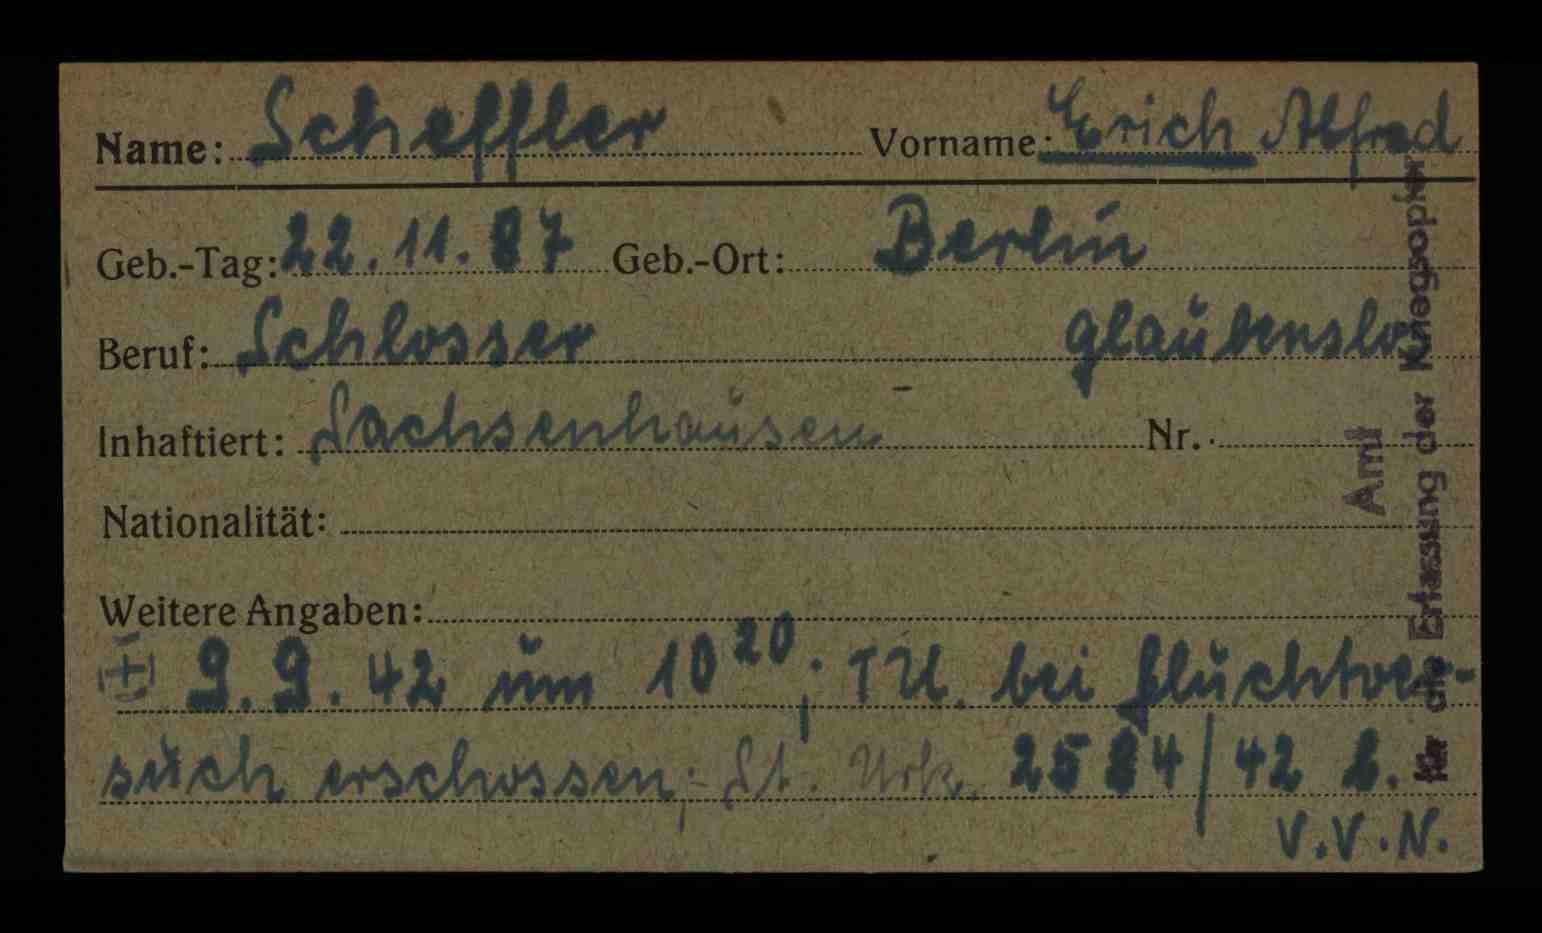 Name: Scheffler Vorname: Erich Alfred
Geb.-Tag: 22.11.87 Geb.-Ort: Berlin
Beruf: Schlosser glaubenslos
Inhaftiert: Sachsenhausen Nr.
Nationalität:
Weitere Angaben:
(+) 9.9.42 um 10 20; TU. bei Fluchtver-
such erschossen; - St. Urk. 2584/42 b.
V.V.N.
Amt
für die Erfassung der Kriegsopfer